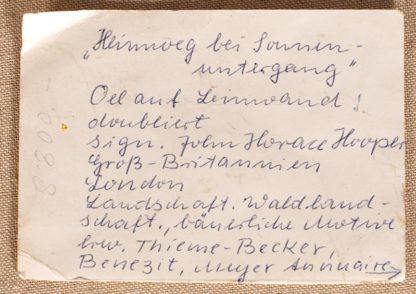 „Heimweg bei Sonnen-
untergang"
Oel auf Leinwand!
doubliert
sign. John Horace Hooper
Groß-Britannien
London
Landschaft. Waldland-
schaft., bäuerliche Motive
bzw. Thieme-Becker,
Benezit, Meyer Annuaire→
8800.-